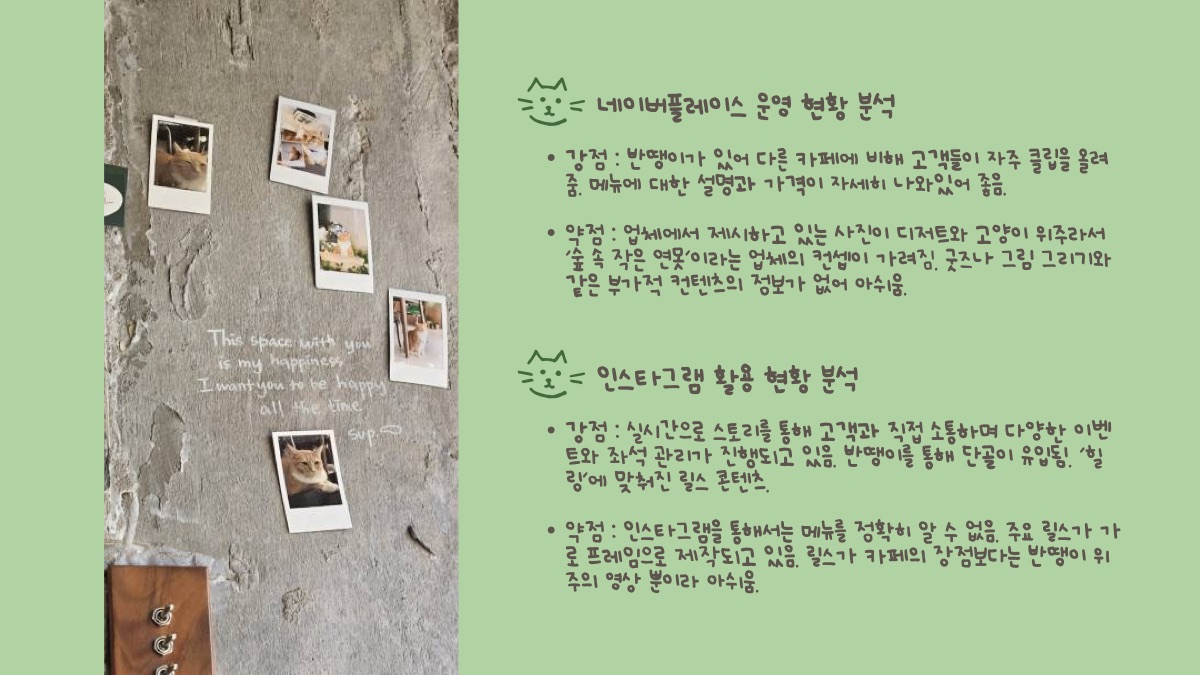 This space with you
is my happiness
I want you to be happy
all the time
sup.
네이버플레이스 운영 현황 분석
• 강점 : 반땡이가 있어 다른 카페에 비해 고객들이 자주 클립을 올려
줌. 메뉴에 대한 설명과 가격이 자세히 나와있어 좋음.
• 약점 : 업체에서 제시하고 있는 사진이 디저트와 고양이 위주라서
'숲 속 작은 연못'이라는 업체의 컨셉이 가려짐. 굿즈나 그림 그리기와
같은 부가적 컨텐츠의 정보가 없어 아쉬움.
인스타그램 활용 현황 분석
• 강점 : 실시간으로 스토리를 통해 고객과 직접 소통하며 다양한 이벤
트와 좌석 관리가 진행되고 있음. 반땡이를 통해 단골이 유입됨. '힐
링'에 맞춰진 릴스 콘텐츠.
• 약점 : 인스타그램을 통해서는 메뉴를 정확히 알 수 없음. 주요 릴스가 가
로 프레임으로 제작되고 있음. 릴스가 카페의 장점보다는 반땡이 위
주의 영상 뿐이라 아쉬움.